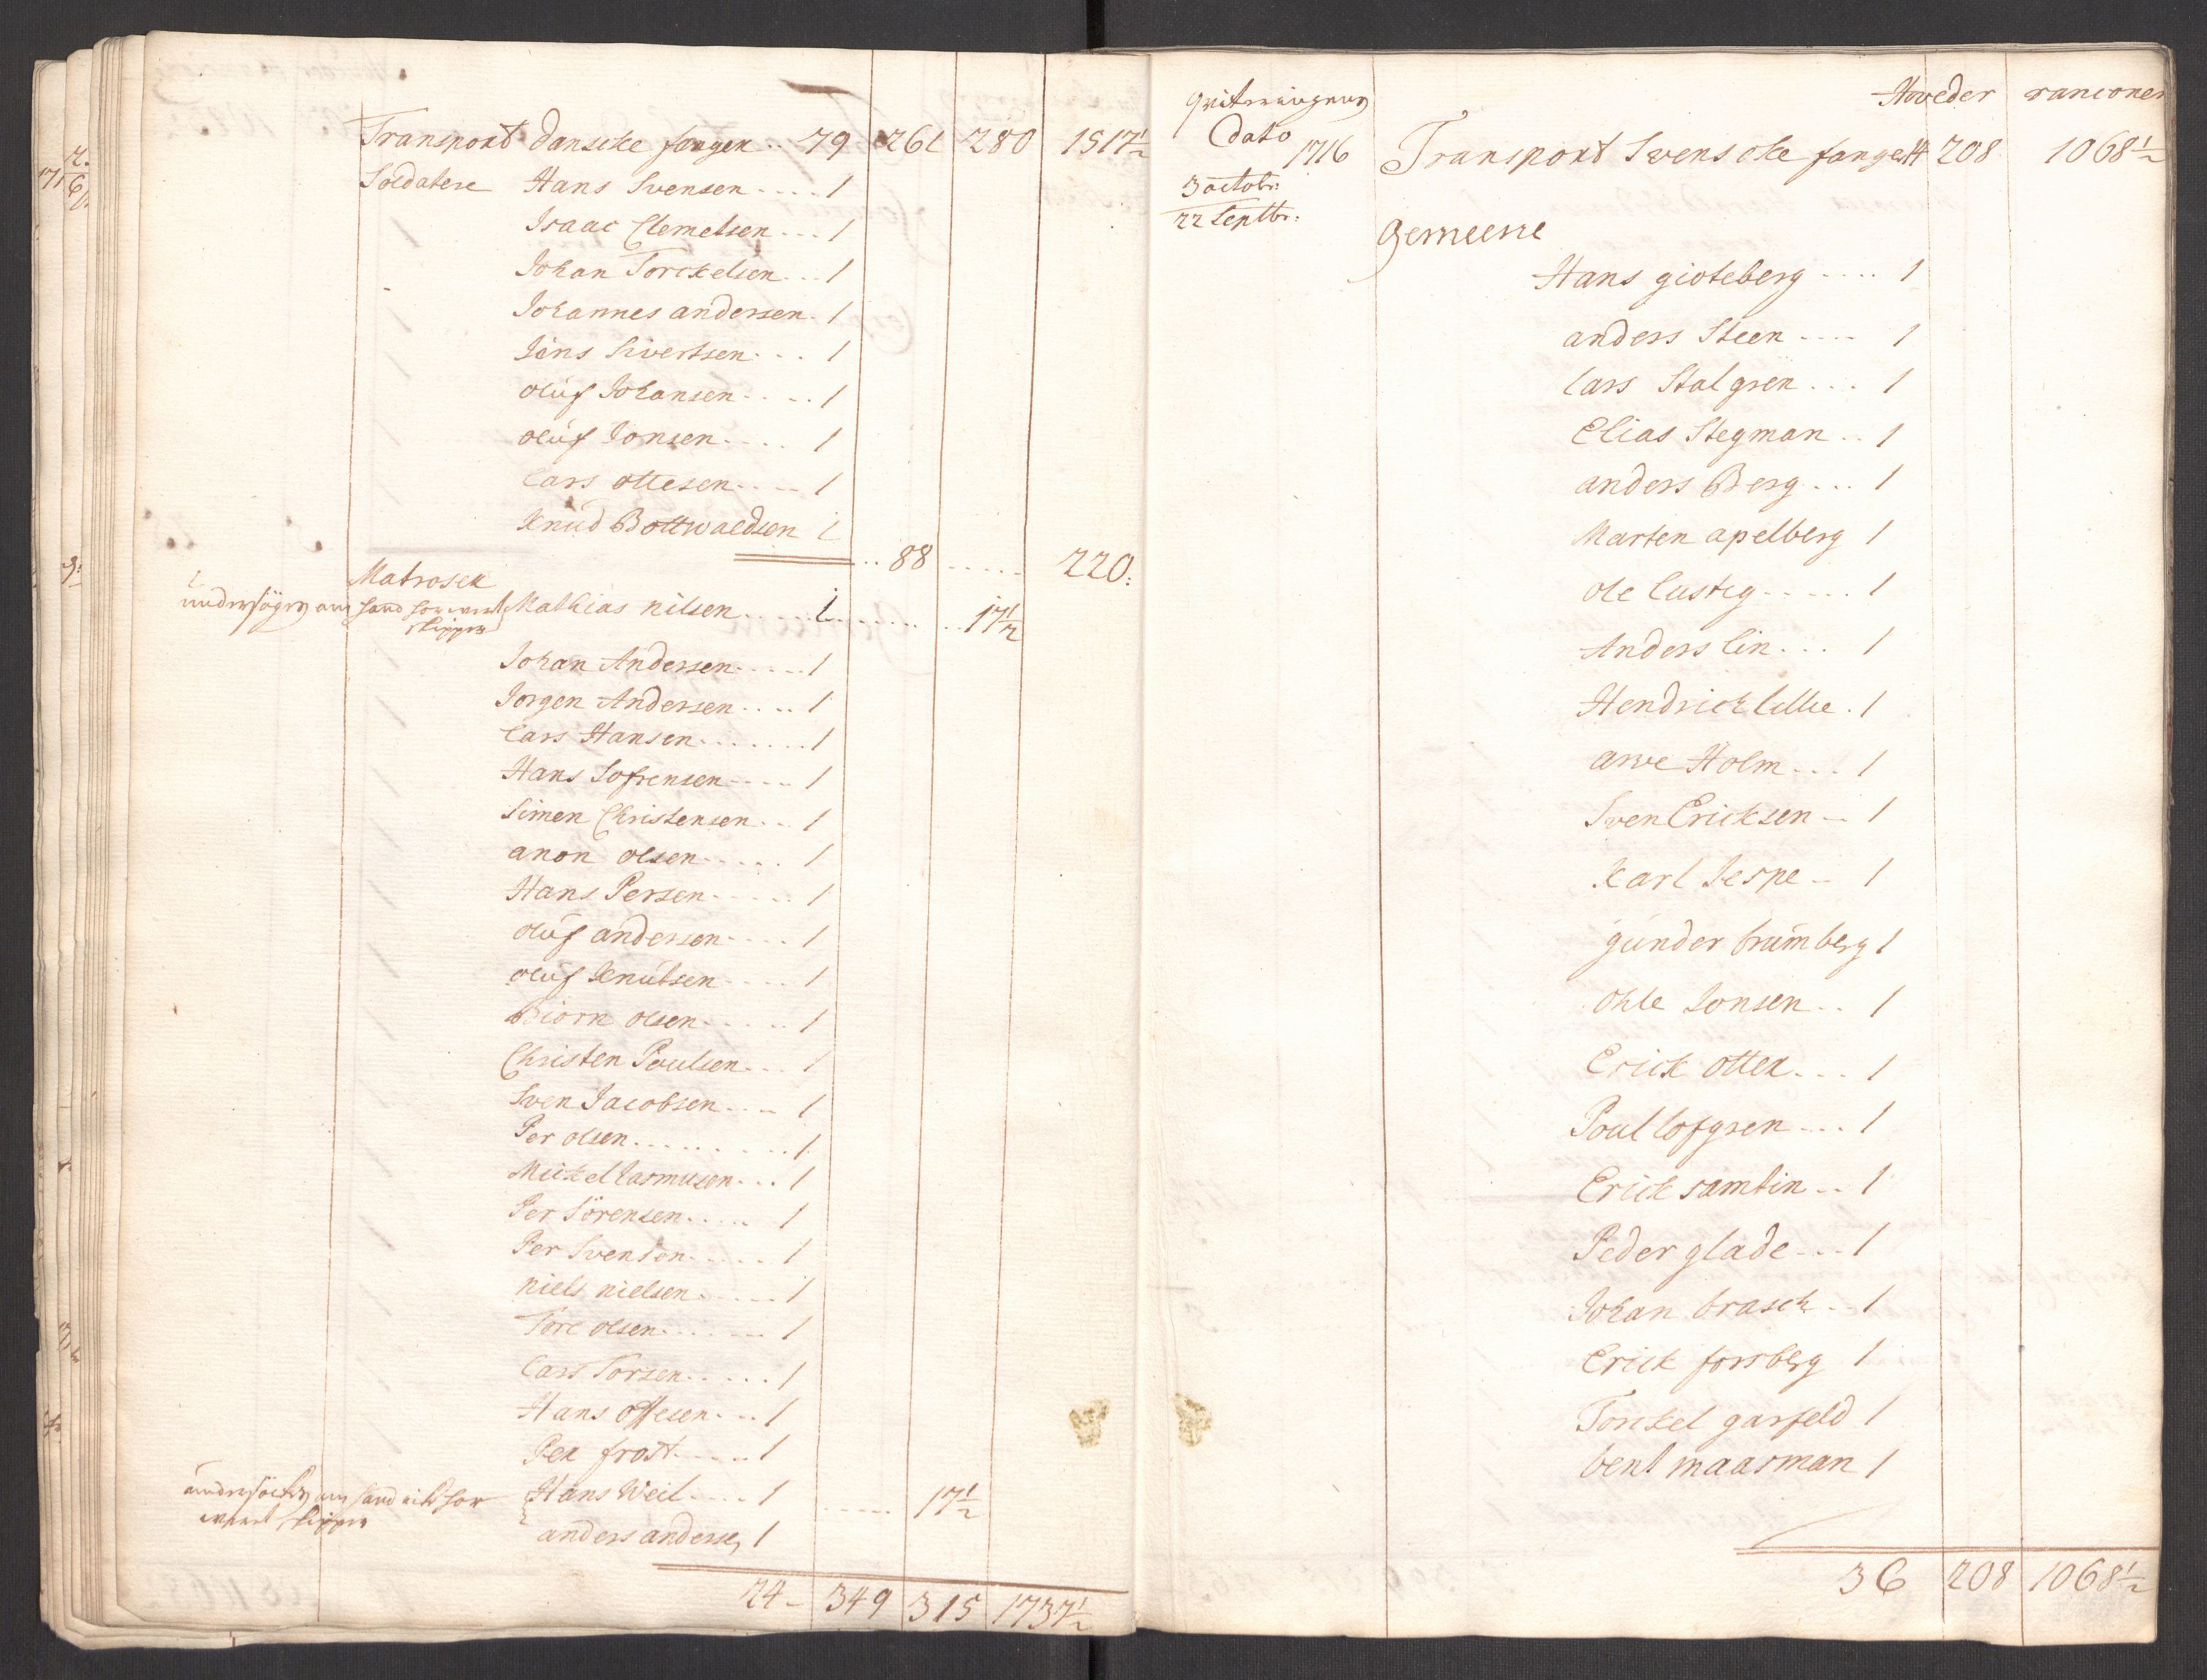 Transport danscke fanger .. 79 261 280 1517½
Soldatere Hans Svensen .... 1
Isaac Clemetsen ... 1
Johan Torckelsen ... 1
Johannes andersen . 1
Jöns Sivertsen ... 1
oluf Johansen .... 1
oluf Jonsen .... 1
Lars ottesen .... 1
Knud Bottwaldsen 1
.. 88 ..... 220:
Matroser
Mathias nilsen ..... 1 ........ 17½
skipper
Johan Andersen ..... 1
Jorgen Andersen .... 1
Lars Hansen ....... 1
Hans Sofrensen .... 1
Simen Christensen .. 1
anon olsen ..... 1
Hans Persen ..... 1
oluf andersen .... 1
oluf Knutsen .... 1
Biorn olsen ..... 1
Christen Poulsen ... 1
Sven Jacobsen .... 1
Per olsen ......... 1
Mickel Rasmusen ... 1
Per Sörensen ..... 1
Per Svenson ..... 1
niels nielsen ..... 1
Tore olsen ...... 1
Lars Torsen ..... 1
Hans ottesen ... 1
Per frost ..... 1
Hans Weil .... 1 ..... 17½
skipper
anders andersen 1
24 - 349 315 1737½
Hoveder rancioner
dato
1716 Transport Svenscke fanger 14 208 1068½
3 octobr:
22 Septbr:
Gemeene
Hans gioteberg .... 1
anders Steen .... 1
Lars Stalgren ... 1
Elias Stegman .. 1
anders Berg ... 1
Marten apelberg 1
ole Lustig ..... 1
Anders Lin ... 1
Hendrick Lillie . 1
arve Holm ... 1
Sven Ericksen - 1
Karl Jespe - 1
gunder brumberg 1
ohle Jonsen .. 1
Erick otter ... 1
Poul Lofgren ... 1
Erick samtin .. 1
Peder glade ... 1
Johan brasch . 1
Erick forsberg 1
Torckel garfeld 1
bent maasman 1
36 208 1068½